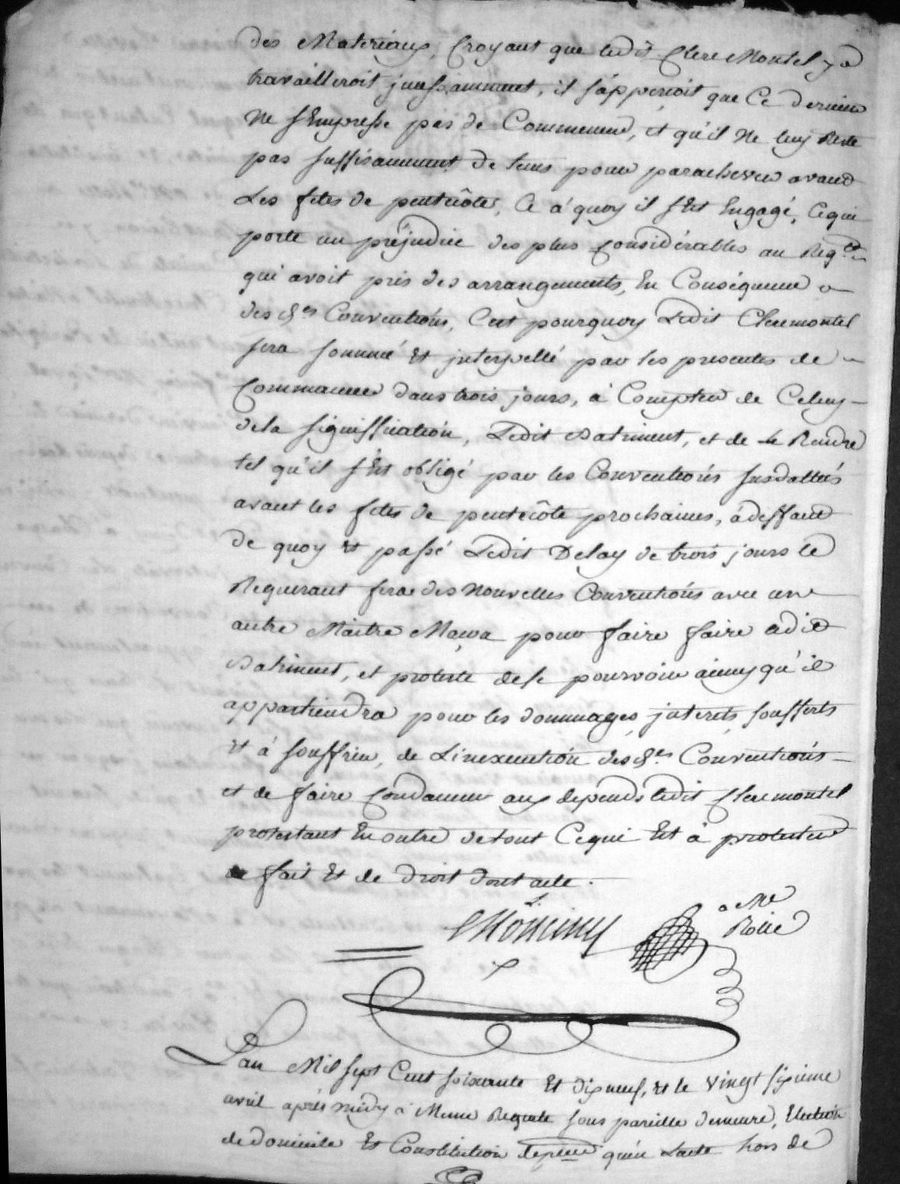 des Materiaux, Croyant que ledit Cleremontel y a
travailleroit jncessamment, il s'apperçoit que Ce dernier
Ne s'Empresse pas de Commencer, et qu'il Ne luy Reste
pas suffisamment de tems pour parachever avant
Les fetes de pentecôte, Ce a quoy il s'est Engagé, Cequi
porte un préjudice des plus Considérables au Reqt
qui avoit pris des arrangements, En Conséquence
des des Conventions, C'est pourquoy Ledit Cleremontel
sera sommé Et jnterpellé par les presentes de
Commancer dans trois jours, à Compter de Celuy
dela signiffication, Ledit Batiment, et de Le Rendre
tel qu'il s'Est obligé par les Conventions susdattés
avant les fetes de pentecôte prochaines, à deffaut
de quoy Et passé Ledit Delay de trois jours le
Requerant fera des Nouvelles Conventions avec un
autre Maitre Maçon pour faire faire
Batiment, et proteste de se pourvoir ainsy qu'il
appartiendra pour les dommages, jnterets, soufferts
Et à souffrir, de L'inexecution des des Conventions
et de faire Condamner aux depends ledit Cleremontel
protestant En outre de tout Cequi Est à protester
de fait Et de Droit dont acte.
L'an Mil sept Cent soixante Et dix neuf, Et le vingt sixieme
avril après midy à Meme Requete sous pareille demeure, Election
de domicile Et Constitution qu'en L'acte hors de